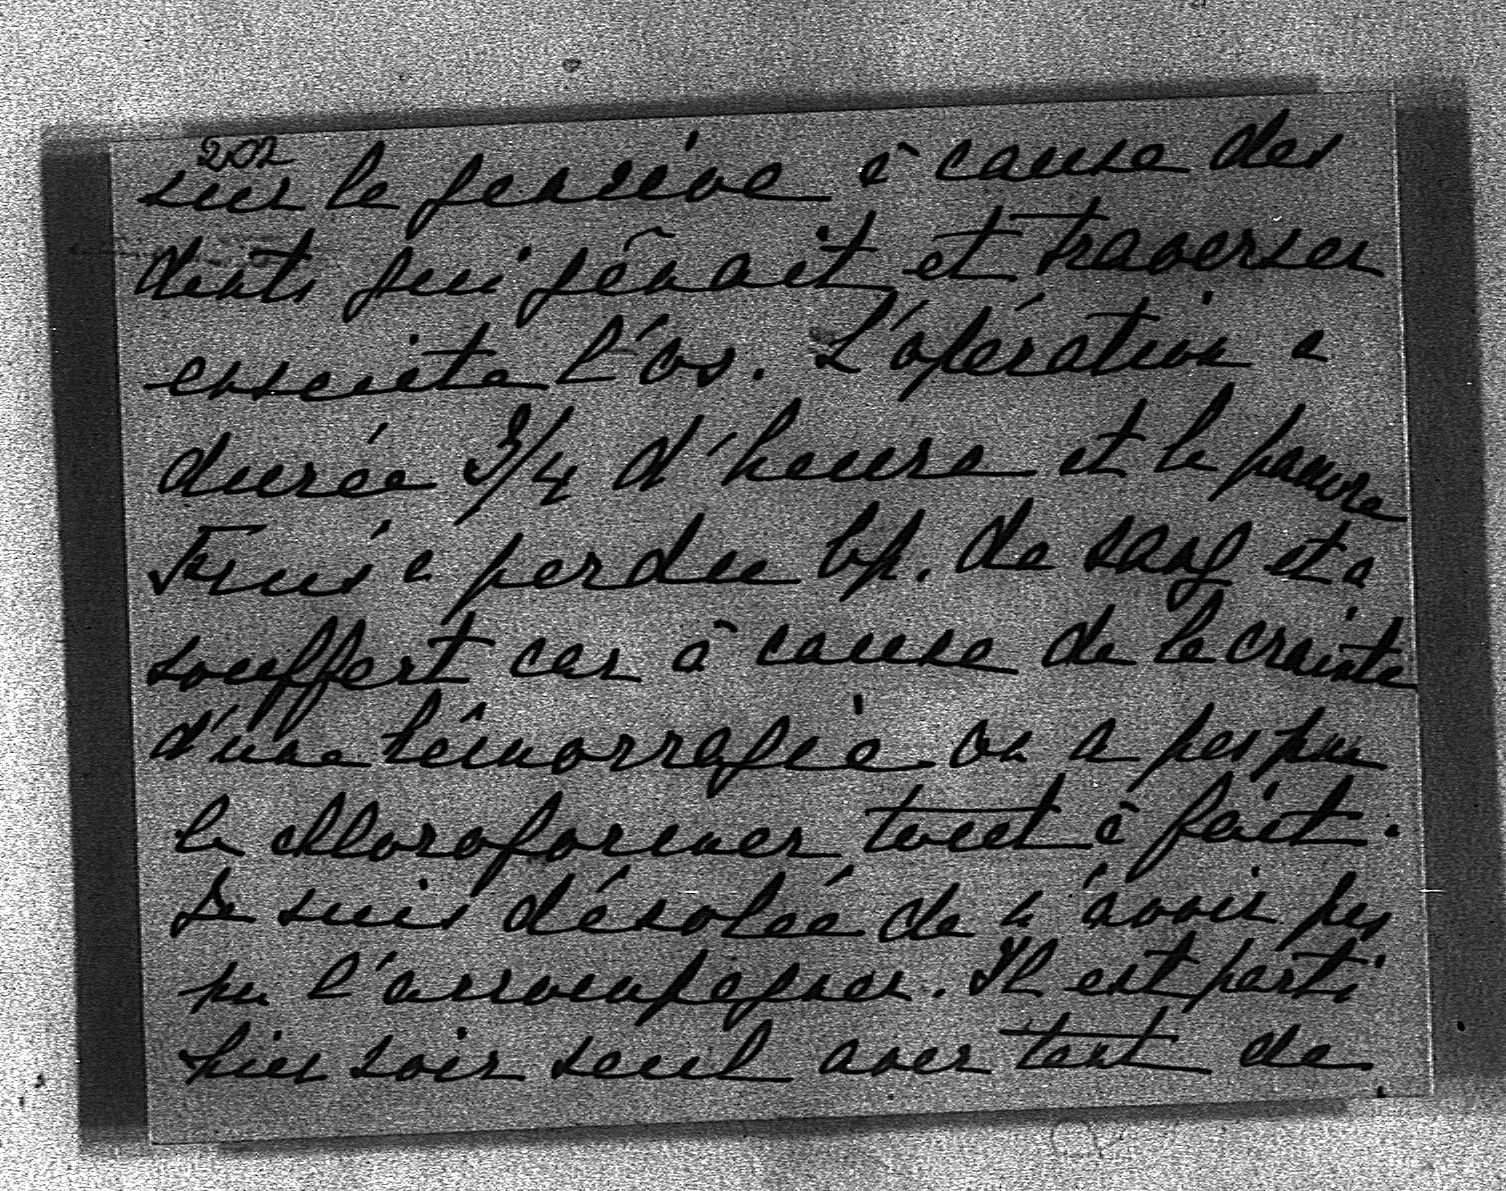 202
sur la gencive à cause des
dents qui gênait et traverser
ensuite l'os. L'opération a
durée 3/4 d'heure et le pauvre
a perdu bp. de sang et a
souffert car à cause de la crainte
d'une hémorragie on a pas pu
le chloroformer tout à fait.
Je suis désolée de n'avoir pas
pu l'accompagner. Il est parti
hier soir seul avec tant de